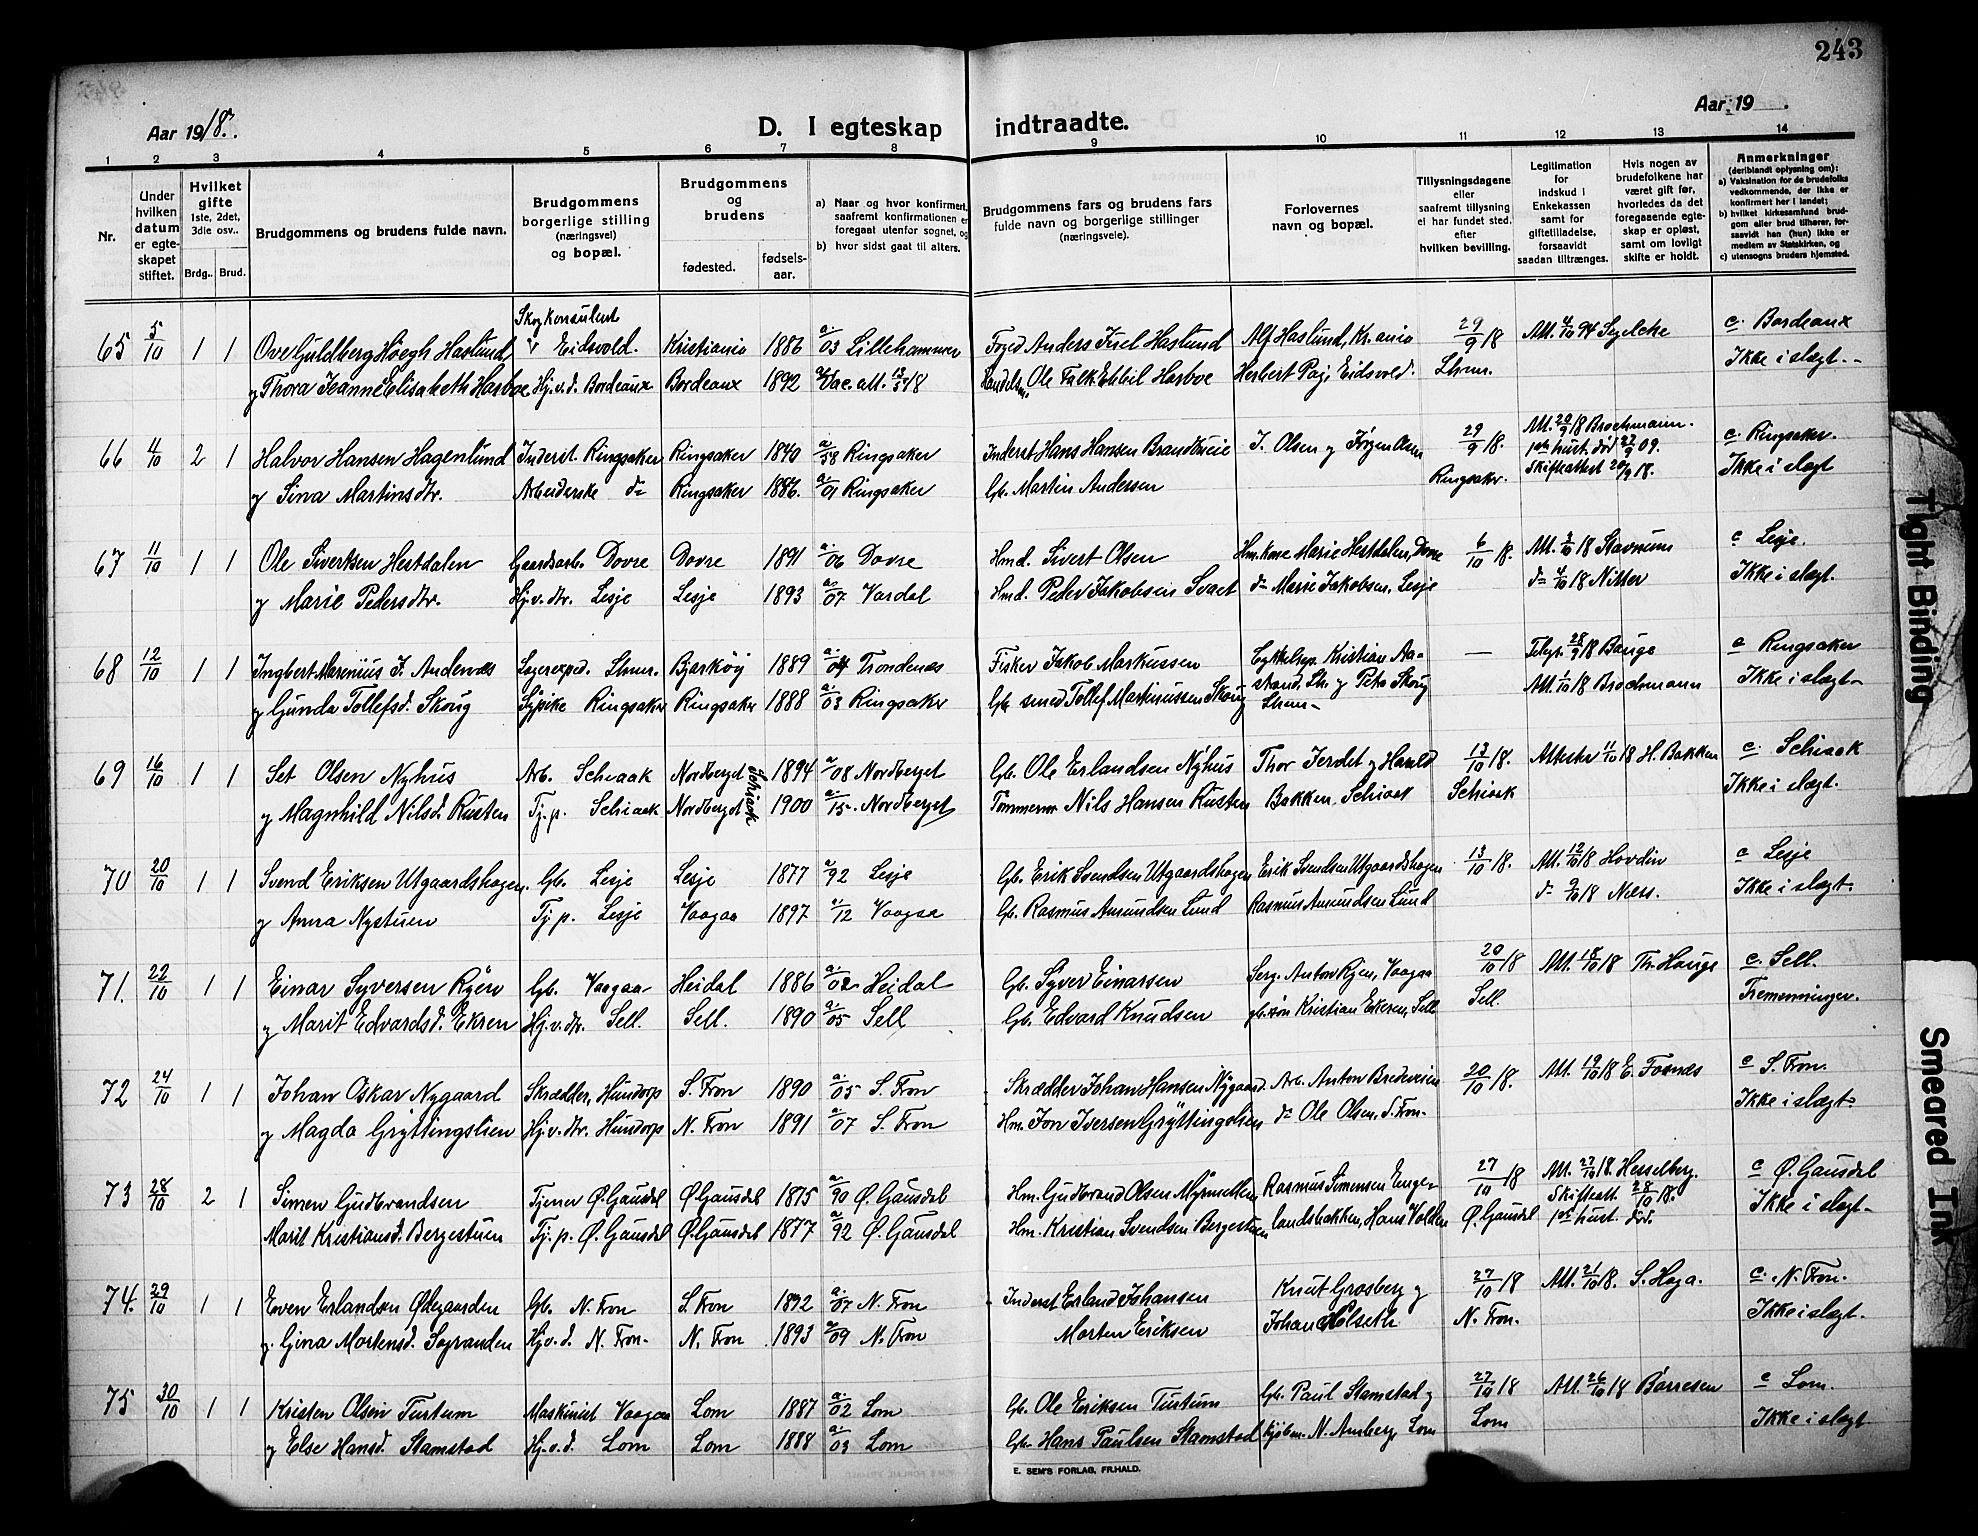 243
Aar 1918.
D. I egteskap indtraadte.
Aar 19 .
1 2 3 4 5 6 7 8 9 10 11 12 13 14
Nr.
Under hvilken datum er egteskapet stiftet.
Hvilket gifte 1ste, 2det, 3die osv..
Brdg.. Brud.
Brudgommens og brudens fulde navn.
Brudgommens borgerlige stilling (næringsvei) og bopæl.
Brudgommens og brudens
fødested. fødsels-aar.
a) Naar og hvor konfirmert, saafremt konfirmationen er foregaat utenfor sognet, og
b) hvor sidst gaat til alters.
Brudgommens fars og brudens fars fulde navn og borgerlige stillinger (næringsveie).
Forlovernes navn og bopæl.
Tillysningsdagene eller saafremt tillysning ei har fundet sted, efter hvilken bevilling.
Legitimation for indskud i Enkekassen samt for giftetilladelse, forsaavidt saadan tiltrænges.
Hvis nogen av brudefolkene har været gift før, hvorledes da det foregaaende egteskap er opløst, samt om lovligt skifte er holdt.
Anmerkninger (deriblandt oplysning om):
a) Vaksination for de brudefolks vedkommende, der ikke er konfirmert her i landet;
b) hvilket kirkesamfund brudgom eller brud tilhører, forsaavidt han (hun) ikke er medlem av Statskirken, og
c) utensogns bruders hjemsted.
65 5/10 1 1 Ove Guldberg Høegh Haslund, Skogkonsulent v Eidsvold. Kristiania 1886 a. 03 Lillehammer Foged Anders Juel Haslund Alf Haslund, Kr.ania 29/9 18 Att. 4/10 94 Segelcke c. Bordeaux
y Thora Jeanne Elisabeth Harboe Hj.v.d. Bordeaux Bordeaux 1892 Ole Falk Ebbil Harboe Herbert Paj, Eidsvold. Lhmr. Ikke i slægt.-
66 4/10 2 1 Halvor Hansen Hagenlund Inderst. Ringsaker Ringsaker 1840 a/58 Ringsaker Inderst Hans Hansen Brandbueie J. Olsen y Jørgen Olsen 29/9 18. Att. 20/9 18 Brochmann. 1ste hust. død 27/9 09. Skifteattest 20/9 18. c. Ringsaker.
y Sina Martinsdtr. Arbeiderske do Ringsaker 1886. a/01 Ringsaker Gb. Martin Andersen Ringsaker. Ikke i slægt
67 11/10 1 1 Ole Sivertsen Hestdalen Gaardsarb. Dovre Dovre 1891 a./06 Dovre Hmd. Sivert Olsen Hm.kone Marie Hestdalen, Dovre 6/10 18. Att. 3/10 18 Stavnum c Lesje.
y Marie Pedersdtr. Hj.v.dtr. Lesje Lesje 1893 a/07 Vardal Hmd. Peder Jakobsen Svaet do Marie Jakobsen, Lesje do 4/10 18 Nitter Ikke i slægt.
68 12/10 1 1 Ingbert Marenius J. Andenæs Lagerexped. Lhmr. Bjarkøy 1889 a./04 Trondenæs Fisker Jakob Markussen Cykkelrep. Kristian Aastrand, Lhr. y Petra Skoug — Telegr. 28/9 18 Bauge c Ringsaker
y Gunda Tollefsd. Skoug Sypike Ringsaker Ringsaker 1888 a./03 Ringsaker Gb. smed Tollef Martinussen Skoug Lhmr. Att. 1/10 18 Brochmann Ikke i slægt-
69 16/10 1 1 Set Olsen Nyhus Arb. Schiaak Nordberget Schiaak 1894 a/08 Nordberget Gb. Ole Erlandsen Nyhus Thor Jerdet y Harald 13/10 18. Attester 11/10 18 H. Bakken c. Schiaak
y Magnhild Nilsd. Rusten Tj.p. Schiaak Nordberget 1900 a./15. Nordberget Tømmerm Nils Hansen Rusten Bakken, Schiaak Schiaak Ikke i slægt.
70 20/10 1 1 Svend Eriksen Utgaardshagen. Gb. Lesje Lesje 1877 a/92 Lesje Gb. Erik Svendsen Utgaardshagen Erik Svendsen Utgaardshagen 13/10 18. Att. 12/10 18 Hovdin c Lesje
y Anna Nystuen Tj.p. Lesje Vaagaa 1897 a/12 Vaagaa Gb. Rasmus Amundsen Lund Rasmus Amundsen Lund do 9/10 18 Næss. Ikke i slægt.
71. 22/10 1 1 Einar Syversen Ryen Gb. Vaagaa Heidal 1886 a./02 Heidal Gb. Syver Einarsen Serg. Anton Ryen, Vaagaa 20/10 18 Att. 18/10 18 Th. Hauge c. Sell.
y Marit Edvardsd. Ekren Hj.v.dtr. Sell. Sell. 1890 a./05 Sell Gb. Edvard Knudsen gb.søn Kristian Ekeren, Sell Sell. Tremenninger.
72 24/10 1 1 Johan Oskar Nygaard Skrædder, Hundorp S. Fron 1890 a./05 S. Fron Skrædder Johan Hansen Nygaard. Arb. Anton Bredevien 20/10 18. Att. 19/10 18 E. Fosnæs c S. Fron.
y Magda Gryttingslien Hj.v.dtr. Hundorp N. Fron 1891 a/07 S. Fron Hm. Jon Iversen Gryttingslien do Ole Olsen, S. Fron. Ikke i slægt.
73 28/10 2 1 Simen Gudbrandsen Tjener Ø. Gausdal Ø. Gausdal 1875 a/90 Ø. Gausdal Hm. Gudbrand Olsen Myrmellen Rasmus Simensen Enge- 27/10 18 Att. 27/10 18. Hesselberg. Skifteatt. 28/10 18. 1ste hust. død. c Ø. Gausdal
Marit Kristiansd. Bergestuen Tj.p. Ø. Gausdal Ø. Gausdal 1877 a/92 Ø. Gausdal Hm. Kristian Svendsen Bergestuen landsbakken, Hans Volden Ø. Gausdal Ikke i slægt.
74. 29/10 1 1 Even Erlandsen Ødegaarden Gb. N. Fron S. Fron 1892 a./07 N. Fron Inderst Erland Johansen Knut Grosberg y 27/10 18 Att. 21/10 18. S. Haga. c. N. Fron.
y. Gina Mortensd. Sagranden Hj.v.d. N. Fron. N. Fron 1893 a/09 N. Fron Morten Eriksen Johan Holseth N. Fron. Ikke i slægt.
75 30/10 1 1 Kristen Olsen Turtum Maskinist Vaagaa Lom 1887 a./02 Lom Gb. Ole Eriksen Turtum Gb. Paul Stamstad y 27/10 18 Att. 26/10 18 Børresen c Lom.
y Else Hansd. Stamstad Hj.v.d. Lom Lom 1888 a/03 Lom Gb. Hans Paulsen Stamstad kjøbm. N. Amberg, Lom Lom Ikke i slægt
E. SEM'S FORLAG, FR.HALD.
Tight Binding
Smeared Ink